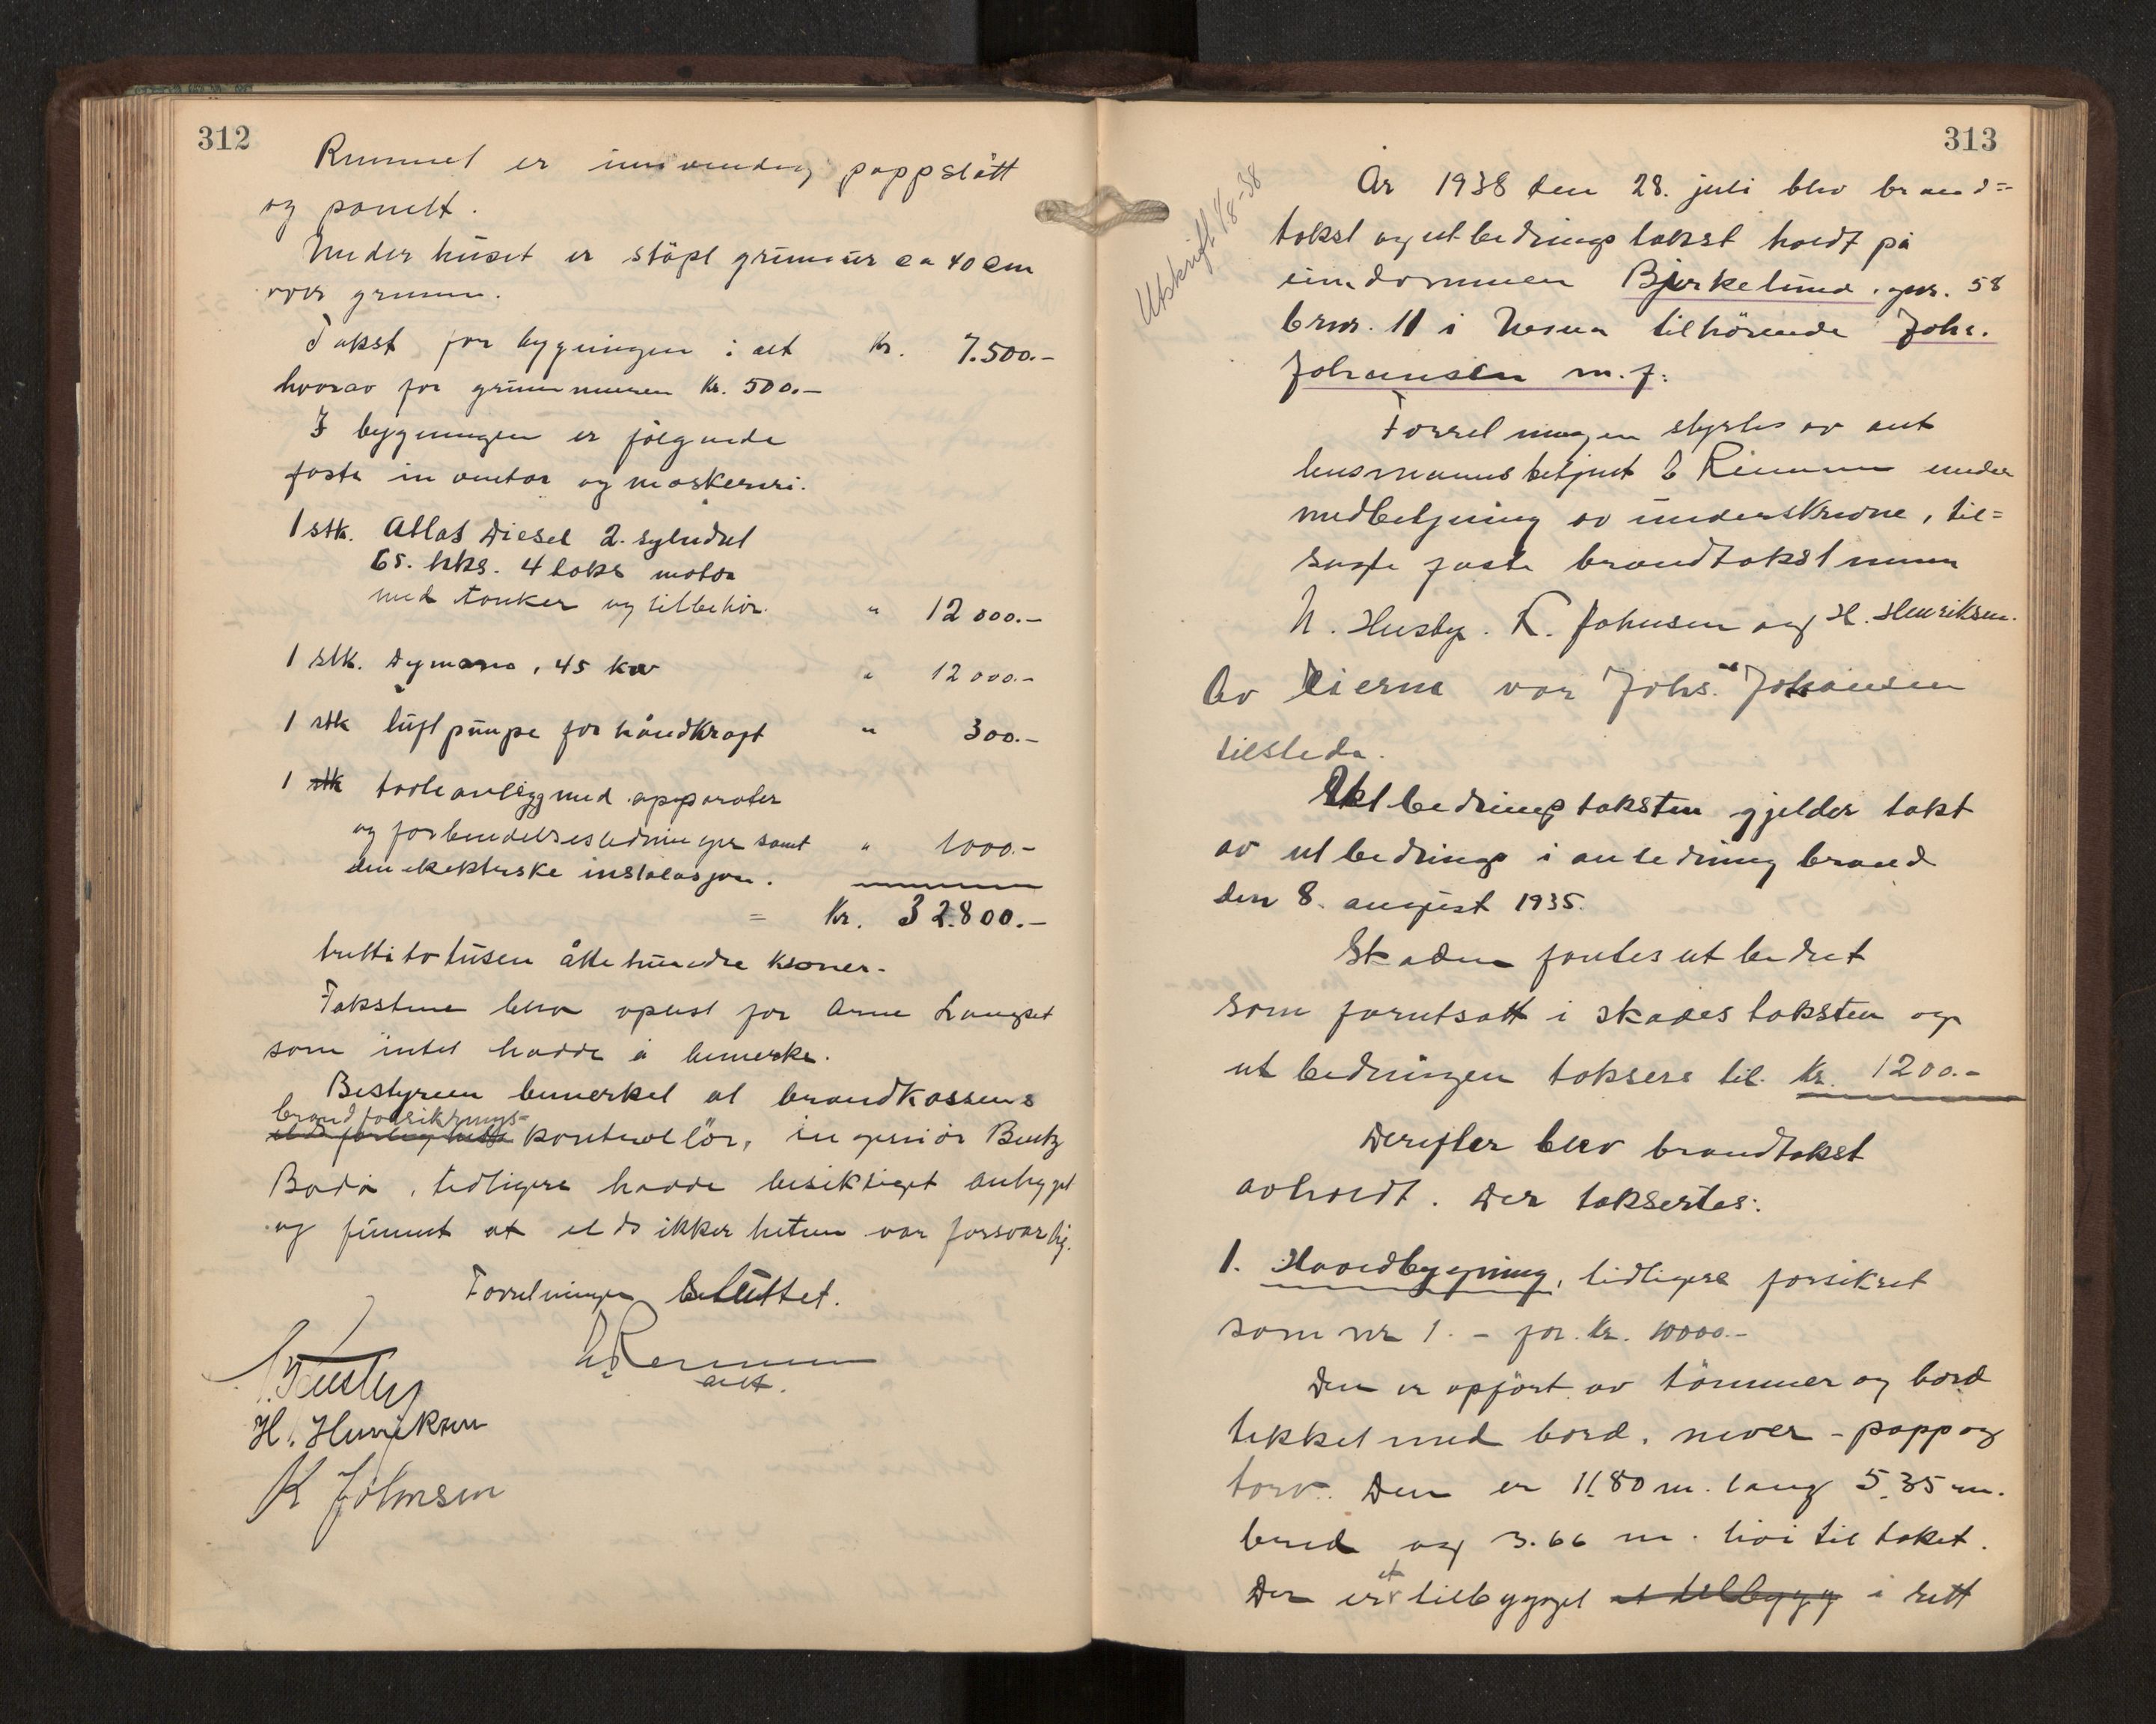 312
Rummet er innvendig pappslått
og panelt.
Under huset er støpt grunmur ca 40 cm
over grunnen.
Takst for bygningen i alt Kr. 7.500.-
hvorav for grunnmuren Kr. 500.-
I bygningen er følgende
faste inventar og maskineri.
1 stk. Atlas Diesel 2. sylindret
65. hks. 4 takts motor
med tanker og tilbehør. " 12 000.-
1 stk. Dymamo, 45 kw " 12 000.-
1 stk luftpumpe for håndkraft " 300.-
1 stk tavleanlegg med apparater
og forbindelsesledninger samt " 1000.-
den elektriske instalasjon.
= Kr. 32.800.-
trettitotusen åttehundre kroner.
Takstene blev oplest for Arne Langset
som intet hadde å bemerke.
Bestyreren bemerket at brandkassens
brandforsikrings-
kontrollör, ingeniör Bentz
Bodø, tidligere hadde besiktiget anlegget
og funnet at eldsikkerheten var forsvarlig.
Forretningen besluttet.
E Remmen
N. Husby ast.
H. Henriksen
K Johnsen
313
Utskrift 4/8-38
År 1938 den 28. juli blev brand=
takst og utbedringstakst holdt på
eiendommen Bjerkelund. gnr. 58
brnr. 11 i Nesna tilhörende Johs.
Johansen m. fl.
Forretningen styrtes av ast
lensmannsbetjent E Remmen under
medbetjening av underskrevne, til=
sagte faste brandtakstmenn
N. Husby. K. Johnsen og H. Henriksen.
Av Eierne var Johs. Johansen
tilstede.
Utbedringstaksten gjelder takt
av utbedrings i anledning brand
den 8. august 1935.
Skaden fantes utbedret
som forutsatt i skadestaksten og
utbedringen taksers til Kr. 1200.-
Derefter blev brandtakst
avholdt. Der taksertes:
1. Hovedbygning, tidligere forsikret
som nr 1. - for Kr. 10000.-
Den er opført av tömmer og bord
tekket med bord, never - papp og
torv. Den er 11.80 m. lang 5.35 m.
bred og 3.66 m. høi til taket.
et
Der er tilbygget et tilbygg i rett